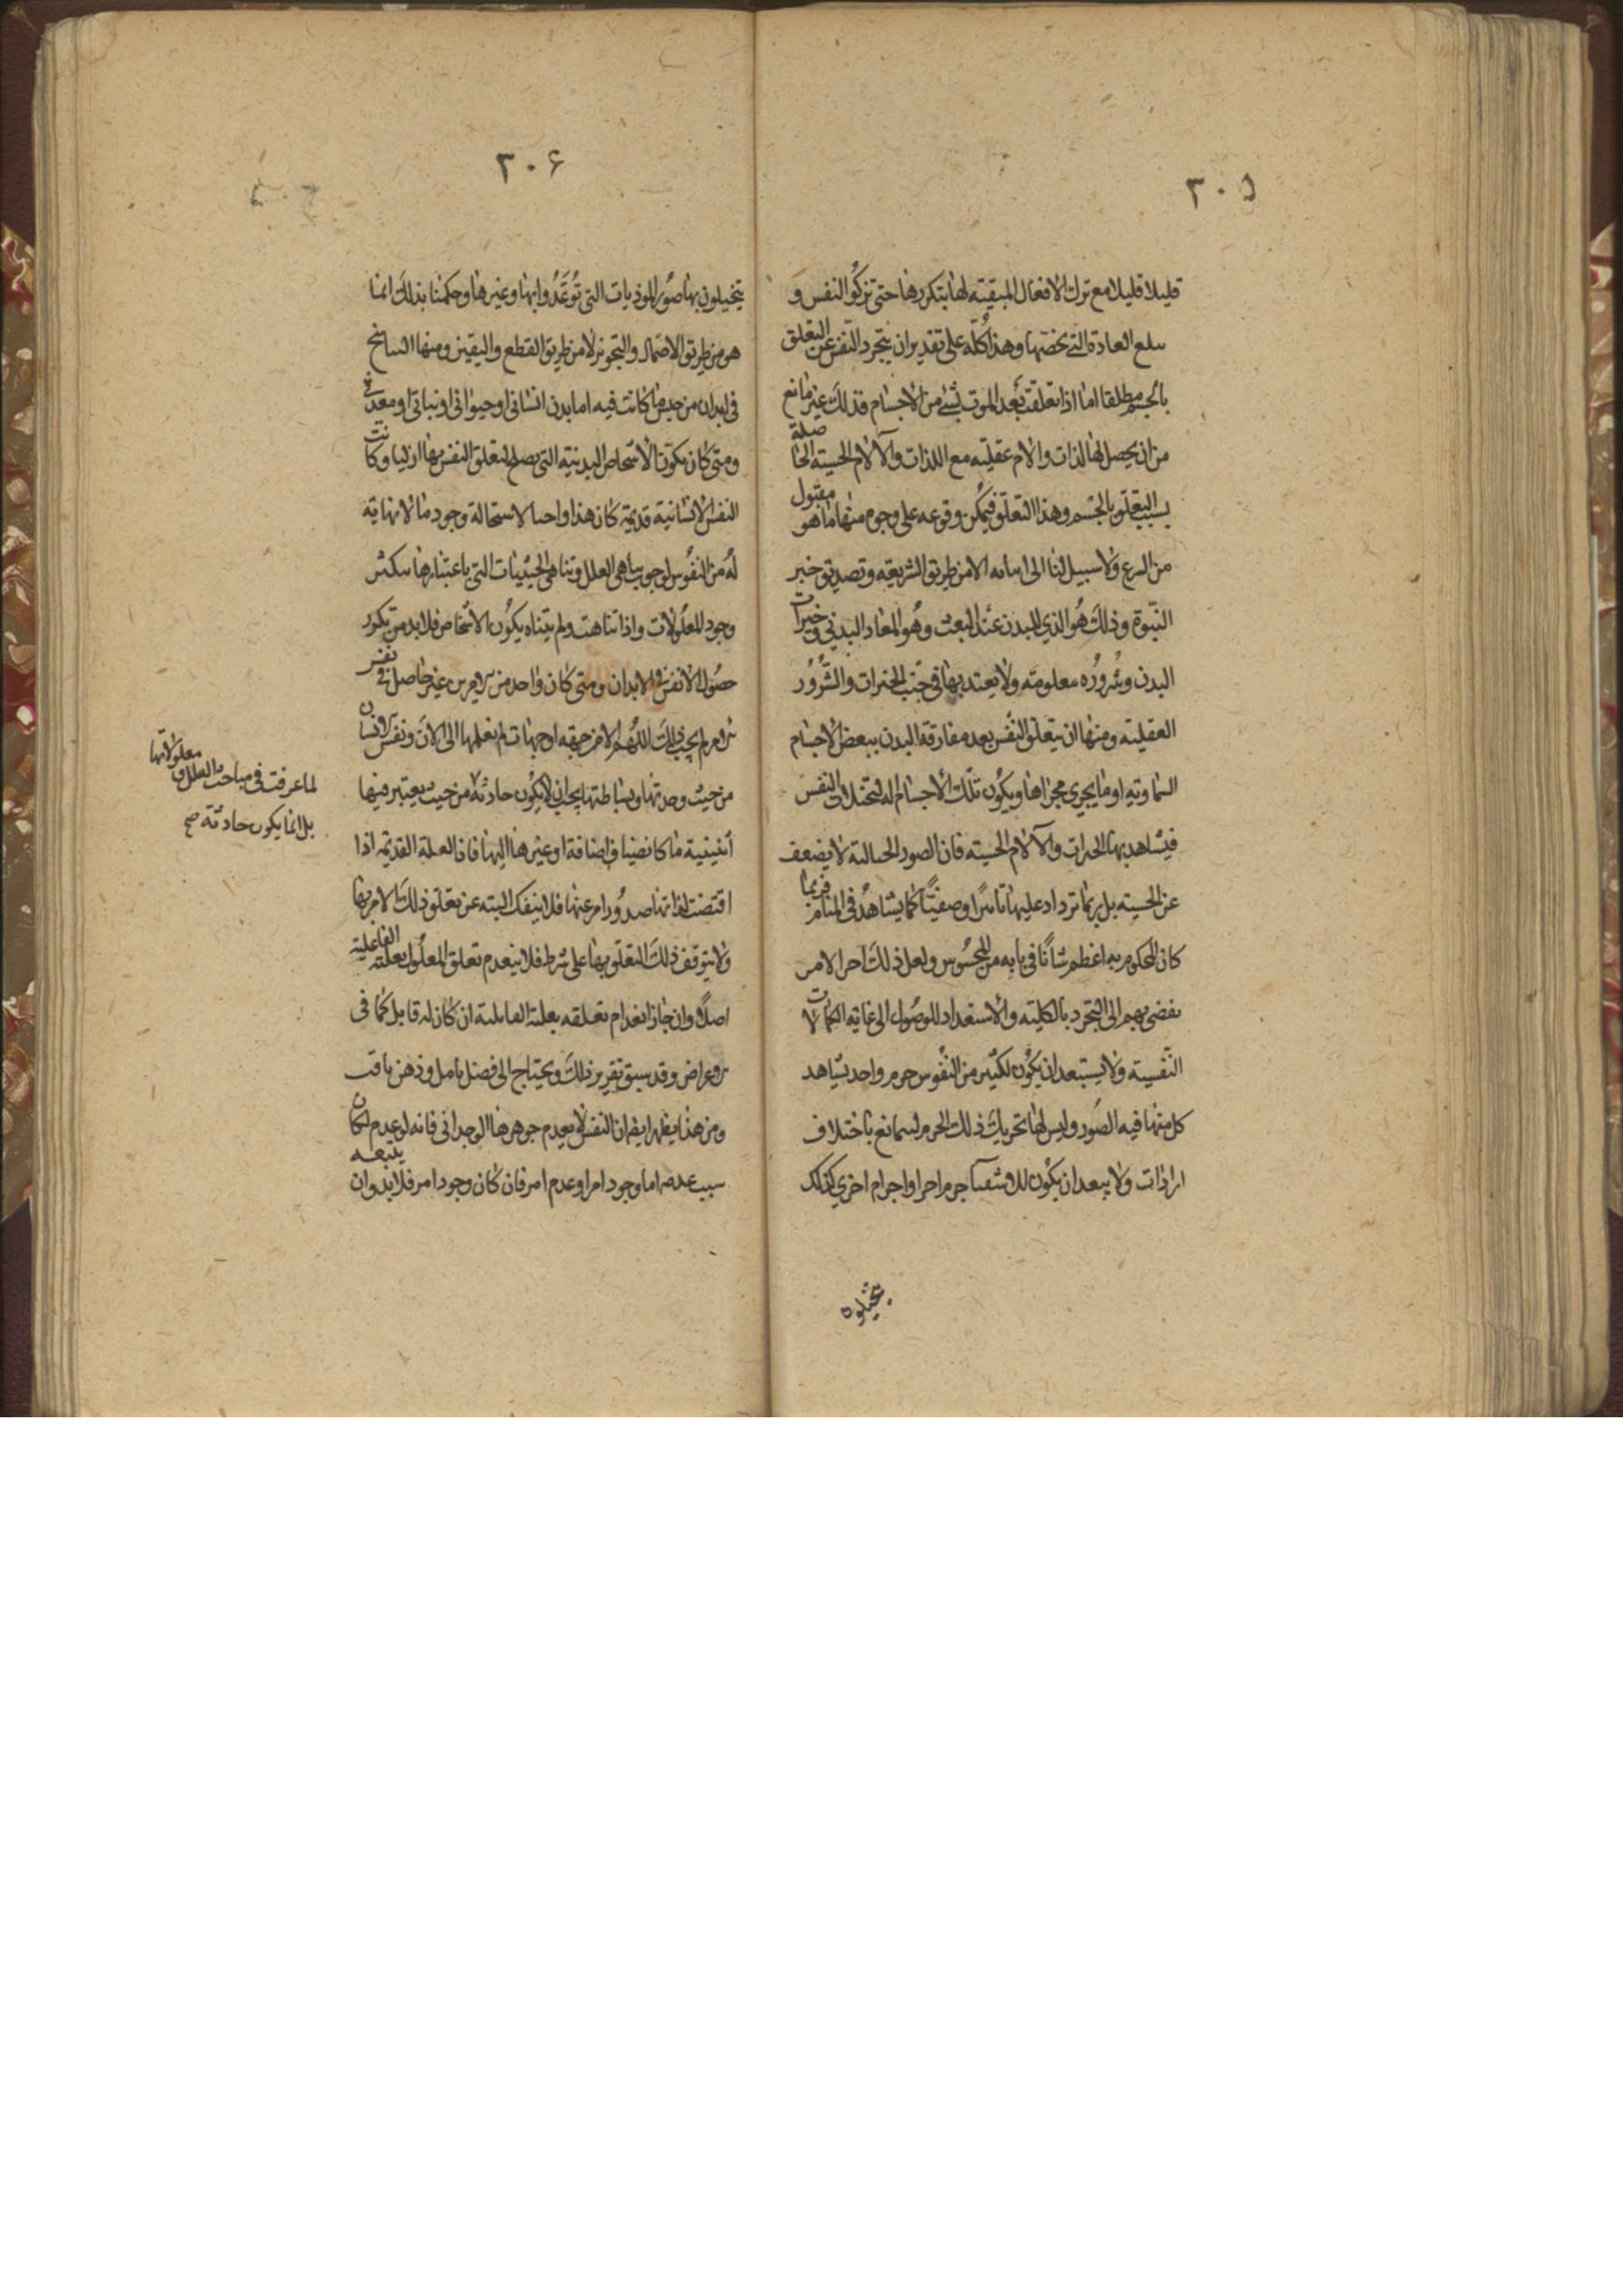 ٣٠٥
قليلا قليلا مع ترك الافعال المبقيته لها بتكررها حتى تزكو النفس و
العادة التي تخصها وهذا كله على تقدير ان يتجرد النفس عن التعلق
بالجسم مطلقا اما اذا تعلقت بعد الموت بشئ من الاجسام فذلك غير مانع
من ان يحصل لها لذات والام عقليه مع اللذات والآلام الحسيته الحاصلة
بسبب التعلق بالجسم وهذا التعلق فيمكن وقوعه على وجوه منها ما هو مقبول
من الشرع ولا سبيل لنا الى اثباته الا من طريق الشريعة وتصديق خبر
النبوة وذلك هو الذي للبدن عند البعث وهو المعاد البدني وخيرات
البدن وشروره معلومة ولا يعتد بها في جنب الخيرات والشرور
العقلية ومنها ان يتعلق النفس بعد مفارقة البدن ببعض الاجسام
السماوية او ما يجري مجراها ويكون تلك الاجسام الة لتخيلات النفس
فيشاهد بها الخيرات والآلام الحسيته فان الصور الخيالية لا يضعف
عن الحسيته بل ربما تزداد عليها تاثيرا وصفيّتا كما يشاهد في المنام فربما
كان المحكوم به اعظم شانا في بابه من المحسوس ولعل ذلك اخر الامر
يفضي بهم الى التجرد بالكلية والاستعداد للوصول الى غاية الكمالات
النفسية ولا يستبعد ان يكون لكثير من النفوس جرم واحد يشاهد
كل منها فيه الصور وليس لها تحريك ذلك الجرم ليتمانع باختلاف
ارادات ولا يبعد ان يكون جرم اخر او اجرام اخري كذلك
يتخيلون
٣٠۶
يتخيلون بها صور الموذيات التي توعدوا بها وغيرها وحكمنا بذلك انما
هو من طريق الاحتمال والتجويز لا من طريق القطع واليقين ومنها التناسخ
في ابدان من جنس ما كانت فيه اما بدن انساني او حيواني او نباتي او معدني
ومتى كان تكون الاشخاص البدنية التي يصلح لتعلق النفس بها ازليا وكانت
النفس الانسانية قديمة كان هذا واجبا لاستحالة وجود ما لا نهاية
له من النفوس لوجوب تناهي العلل وتناهي الحيثيات التي باعتبارها يتكثر
وجود المعلولات واذا تناهت ولم يتناه يكون الاشخاص فلابد من تكرر
حصول الانفس في الابدان ومتى كان واحد من غير حاصل في نفس
لم يجب ذلك اللهم الا من جهة او جهات لم نعلمها الى الان ونفس الانسان
من حيث وحدتها وبساطتها يجب ان لا يكون حادثة من حيث يعتبر فيها
اثنينية ما كانضياف اضافة او غيرها اليها فان العلة القديمة اذا
اقتضت لذاتها صدور امر عنها فلا ينفك البتة عن تعلق ذلك الامر بها
ولا يتوقف ذلك التعلق بها على شرط فلا ينعدم تعلق المعلول بعلته الفاعلية
اصلا وان جاز انعدام تعلقه بعلته القابلية ان كان له قابل كما في
الاعراض وقد سبق تقرير ذلك ويحتاج الى فضل تامل وذهن ثاقب
ومن هذا يظهر ايضا ان النفس لا يعدم جوهرها الوحداني فانه لو عدم لكان
سبب عدمه اما وجود امر او عدم امر فان كان وجود امر فلابد وان يتبعه
لما عرفت في مباحث العلل ومعلولاتها
بل انما يكون حادثة صح